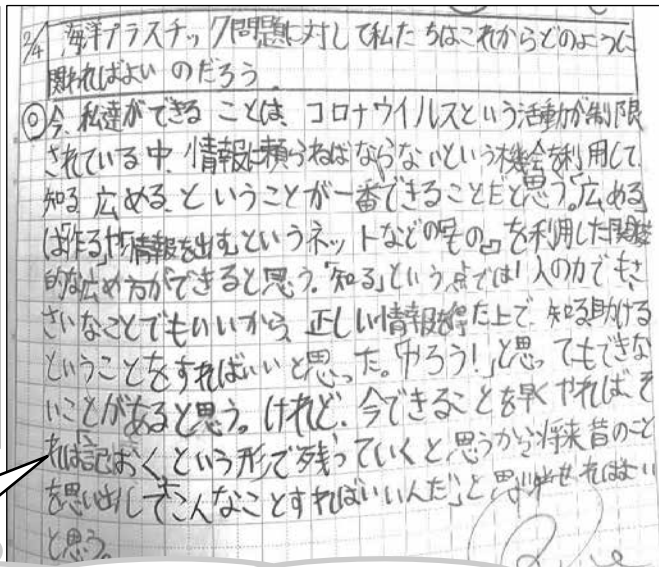 2/4 海洋プラスチック問題に対して私たちはこれからどのように
関ればよいのだろう
◎今、私達ができることは、コロナウイルスという活動が制限
されている中、情報に頼らねばならないという機会を利用して、
知る、広める、ということが一番できることだと思う。「広める」
は「作る」や「情報を出す」というネットなどの「もの」を利用した
的な広め方ができると思う。「知る」という点では1人の力でもさ
さいなことでもいいから、正しい情報を得た上で、知る、助ける
ということをすればいいと思った。「やろう!」と思ってもできな
いことがあると思う。けれど、今できることを早くやれば、そ
れは「記おく」という形で残っていくと思うから将来昔のこと
を思い出して「こんなことすればいいんだ」と思い出せればよい
と思う。